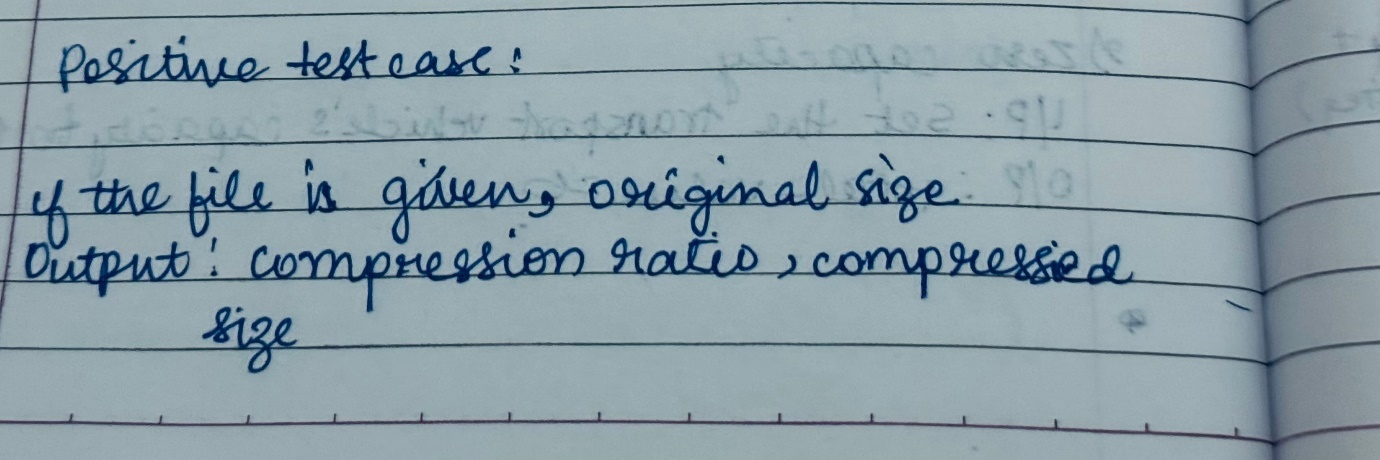 Positive test case:
if the file is given, original size.
Output: compression ratio, compressed
size